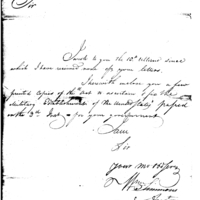 Sir
I wrote to you the 12th Ultimo since
which I have received none of your letters.
I herewith enclose you a few
printed copies of the Act to ascertain & fix the
military establishment of the United States passed
on the for your government
I am
Sir
your
Wm Simmons